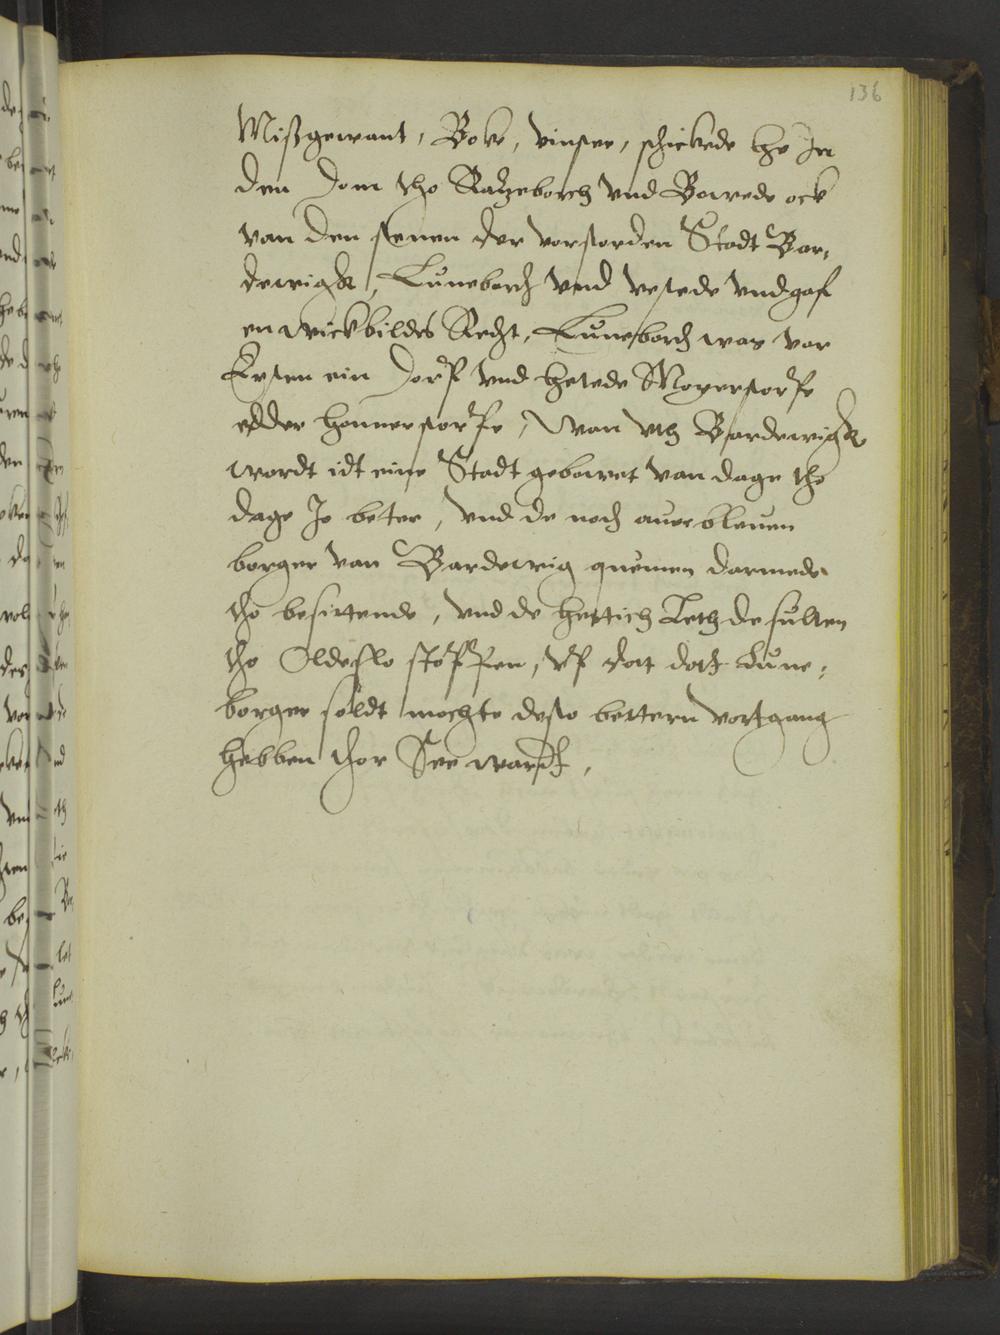 136
Mißgewant, Boke, vinster, schickede he In
den Dom tho Ratzeborch vnd Bawede ock
van den stenen der vorstorden Stadt Bar,
dewigk, Luneborch vnd vestede vnd gaf
en wickbildes Recht, Luneborch was vor
Ersten ein Dorf vnd hetede Moyerstorpe
edder honnerstorpe, Wan vth Bardewigk
wordt idt eine Stadt gebowet van dage tho
dage Jo beter, vnd de noch auerbleuen
borger van Bardewig quemen darmede
tho besittende, vnd de hertich Leth de sulten
tho Oldeslo stoppen, vp dat dat Lune,
borger soldt mochte desto bettern vortgang
hebben thor See wardt,